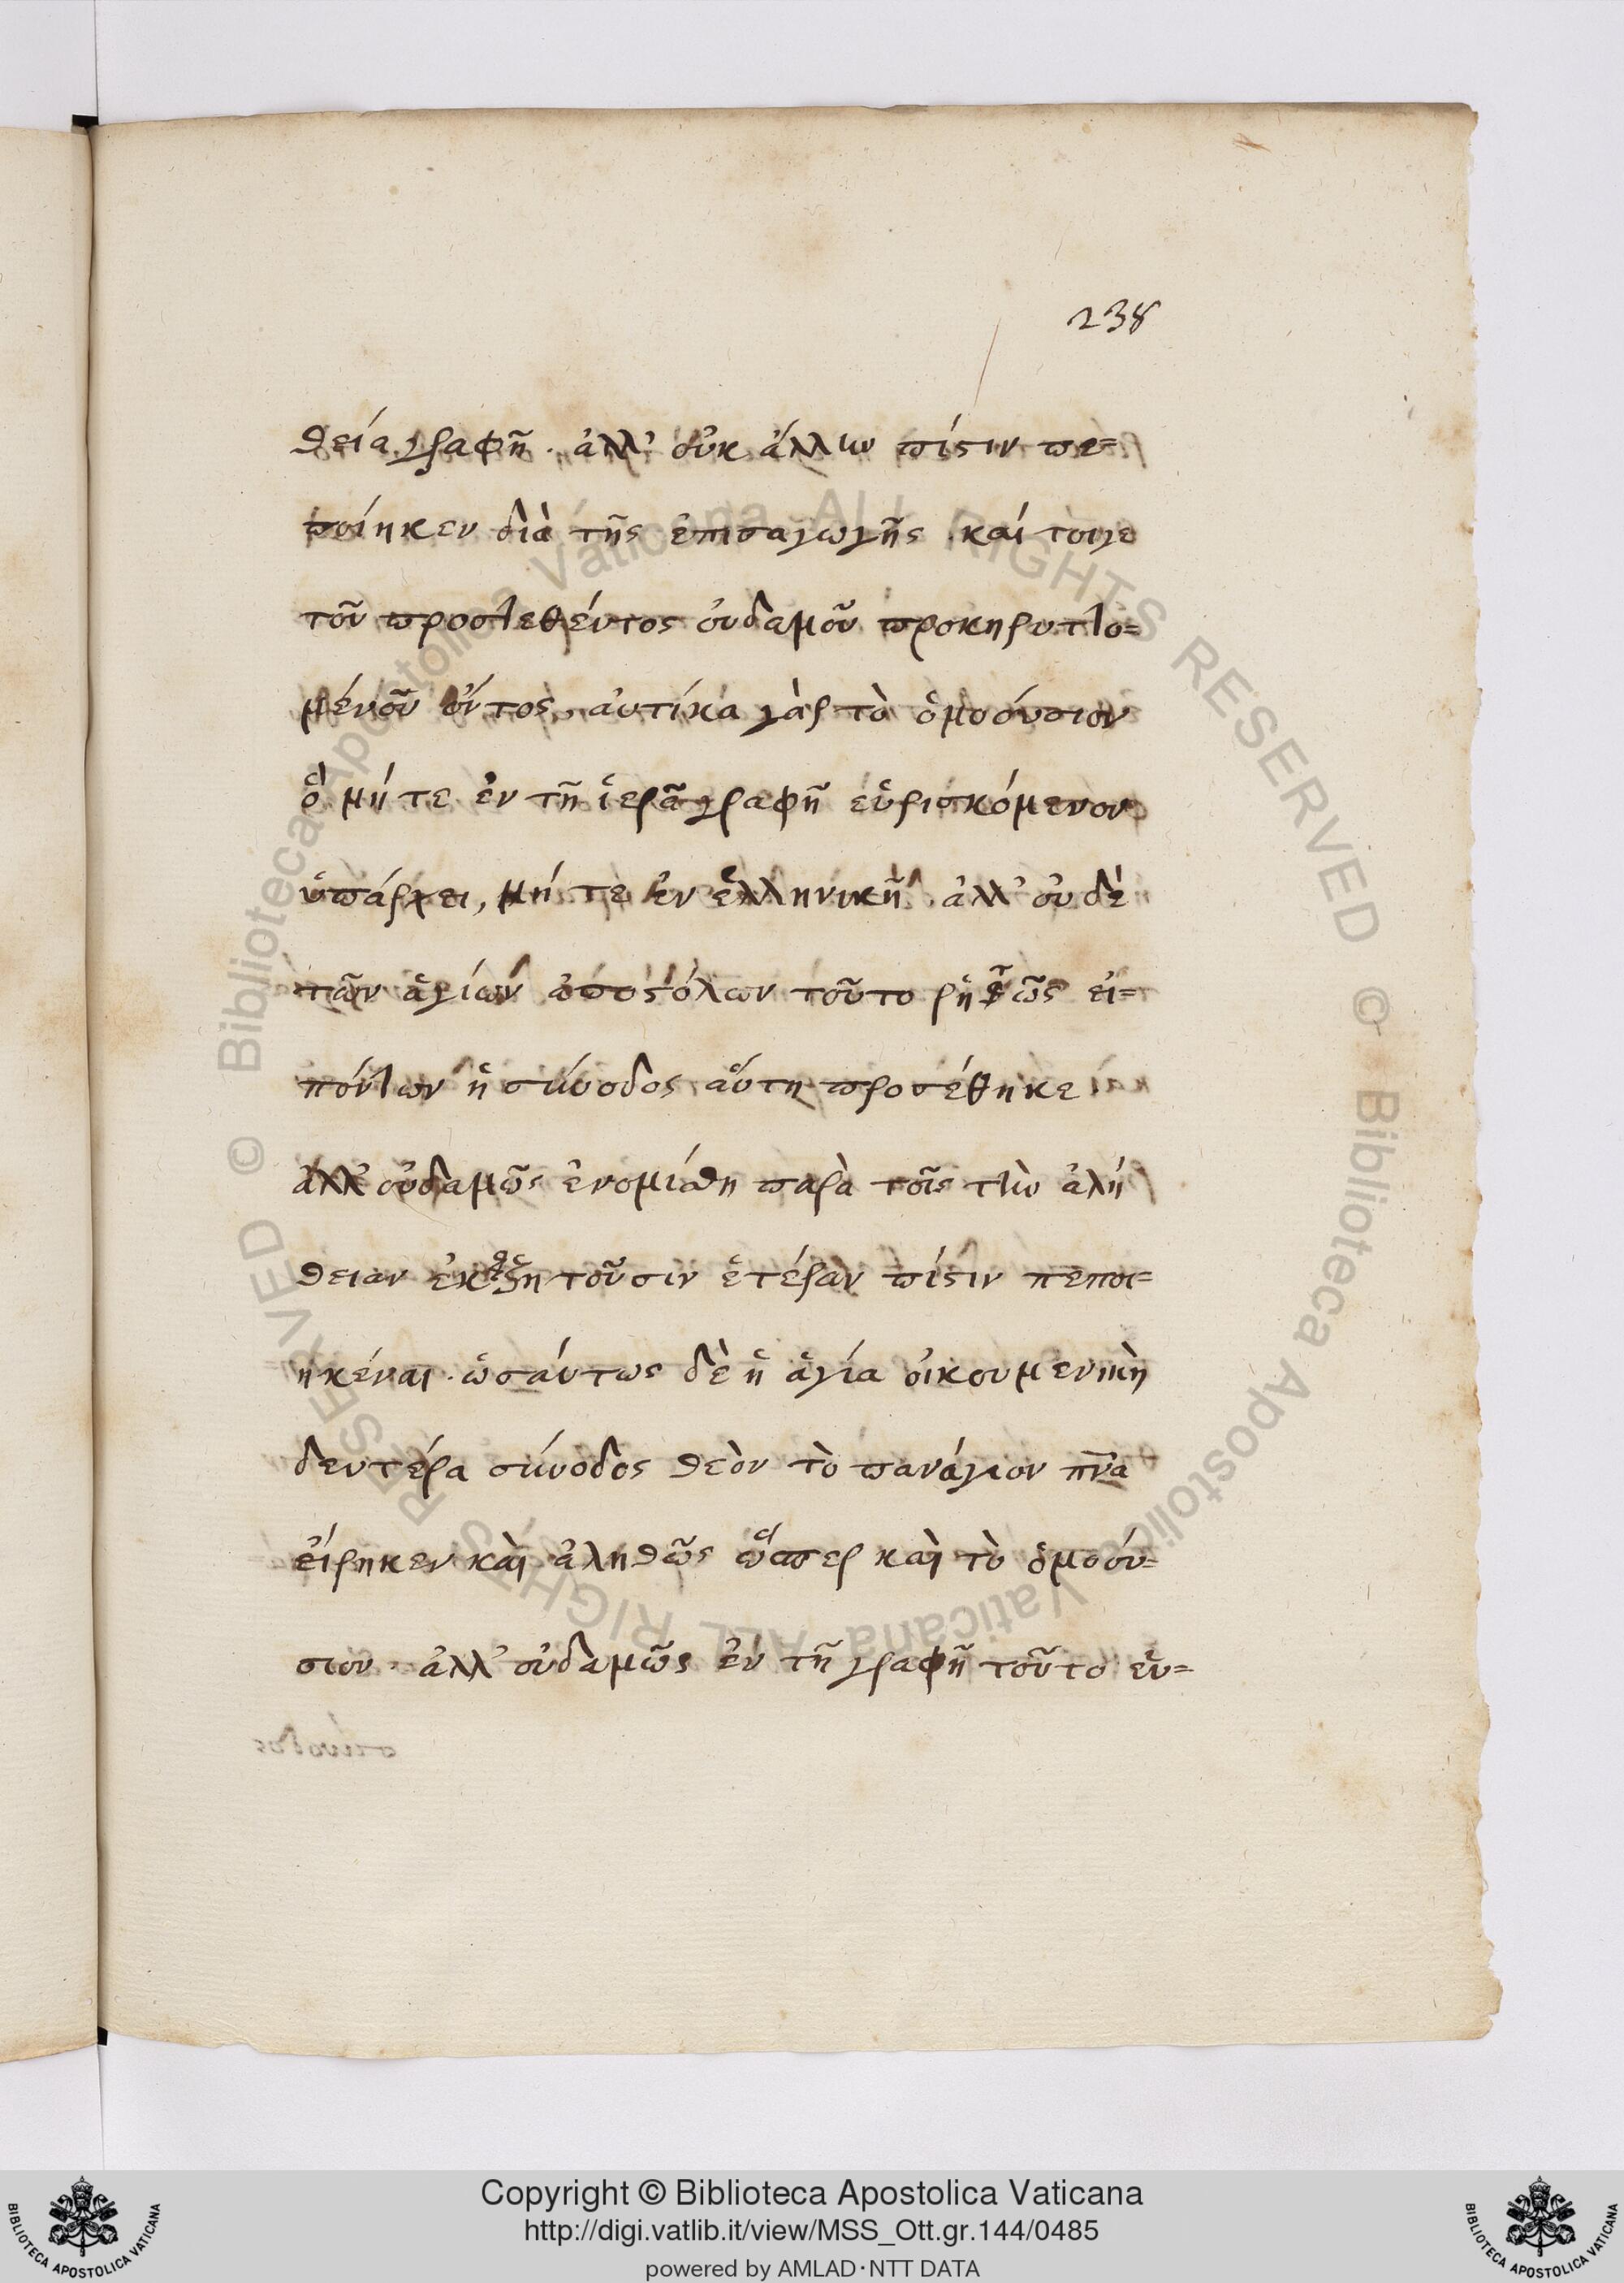 238
θεία γραφῆ. ἀλλ' οὐκ ἄλλην πίστιν πε=
ποίηκεν διὰ τῆς ἐπισαγωγῆς καί τοιγε
τοῦ προστεθέντος οὐδαμοῦ προκηρυττο=
μένου ὄντος, αὐτίκα γὰρ τὸ ὁμοούσιον
ὅ μή τε ἐν τῆ ἱερᾶ γραφῆ εὑρισκόμενον
ὑπάρχει, μή τε ἐν ἑλληνικῆ ἀλλ' οὐδὲ
τῶν ἁγίων ἀποστόλων τοῦτο ῥητῶς εἰ=
πόντων ἡ σύνοδος αὕτη προσέθηκε
ἀλλ' οὐδαμῶς ἐνομίσθη παρὰ τοῖς τὴν ἀλή
θειαν ἐκζητοῦσιν ἑτέραν πίστιν πεποι=
ηκέναι. ὡσάυτως δὲ ἡ ἁγία οἰκουμενικὴ
δευτέρα σύνοδος θεὸν τὸ πανάγιον πνα
εἴρηκεν καὶ ἀληθῶς ὥσπερ καὶ τὸ ὁμοού=
σιον. ἀλλ' οὐδαμῶς ἐν τῆ γραφῆ τοῦτο εὑ=
Copyright © Biblioteca Apostolica Vaticana
http://digi.vatlib.it/view/MSS_Ott.gr.144/0485
powered by AMLAD·NTT DATA
BIBLIOTECA APOSTOLICA VATICANA
BIBLIOTECA APOSTOLICA VATICANA
© Biblioteca Apostolica Vaticana ALL RIGHTS RESERVED © Biblioteca Apostolica Vaticana ALL RIGHTS RESERVED